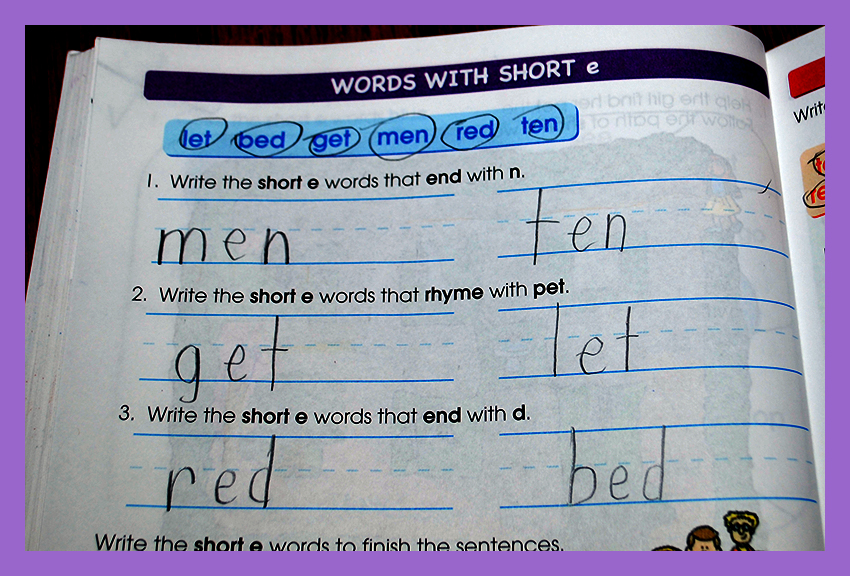 WORDS WITH SHORT e
let bed get men red ten
1. Write the short e words that end with n.
men ten
2. Write the short e words that rhyme with pet.
get let
3. Write the short e words that end with d.
red bed
Write the short e words to finish the sentences.